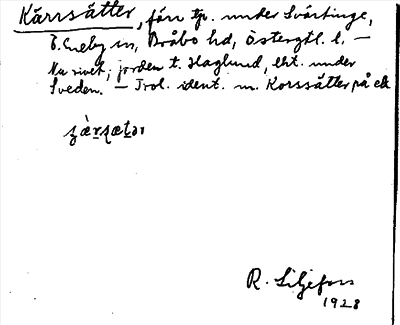 Kärrsätter, förr tp. under Svärtinge,
Ö. Eneby sn, Bråbo hd, Östergtl. l. —
Nu rivet; jorden t. Haglund, eht. under
Sveden. — Trol. ident. m. Korssätter på ek
R. Liljefors
1928